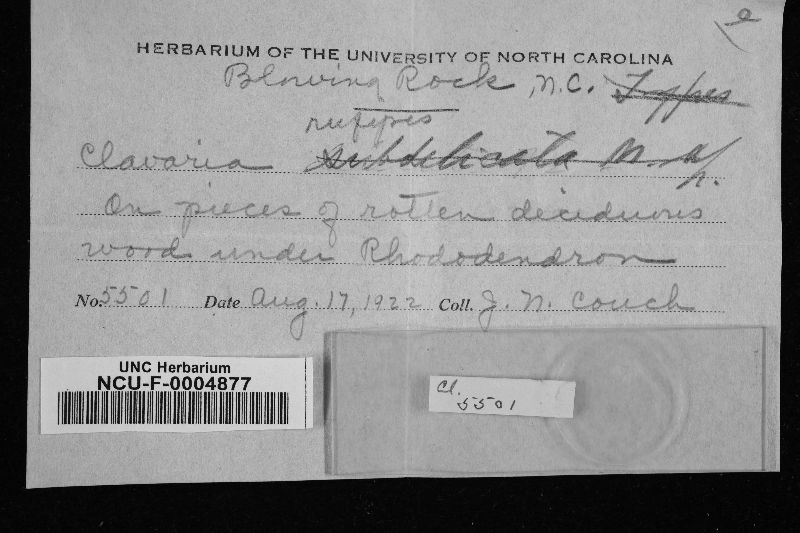 e
HERBARIUM OF THE UNIVERSITY OF NORTH CAROLINA
Blowing Rock, N.C. Types
rufipes
Clavaria subdelicata n. sp.
On pieces of rotten deciduous
wood under Rhododendron
No. 5501 Date Aug. 17, 1922 Coll. J. N. Couch
UNC Herbarium
NCU-F-0004877
Cl.
5501